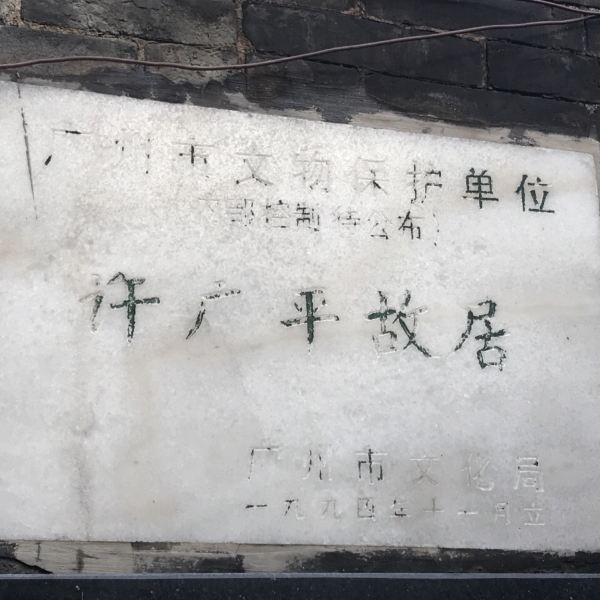 广州市文物保护单位
（内部控制待公布）
许广平故居
广州市文化局
一九九四年十一月立